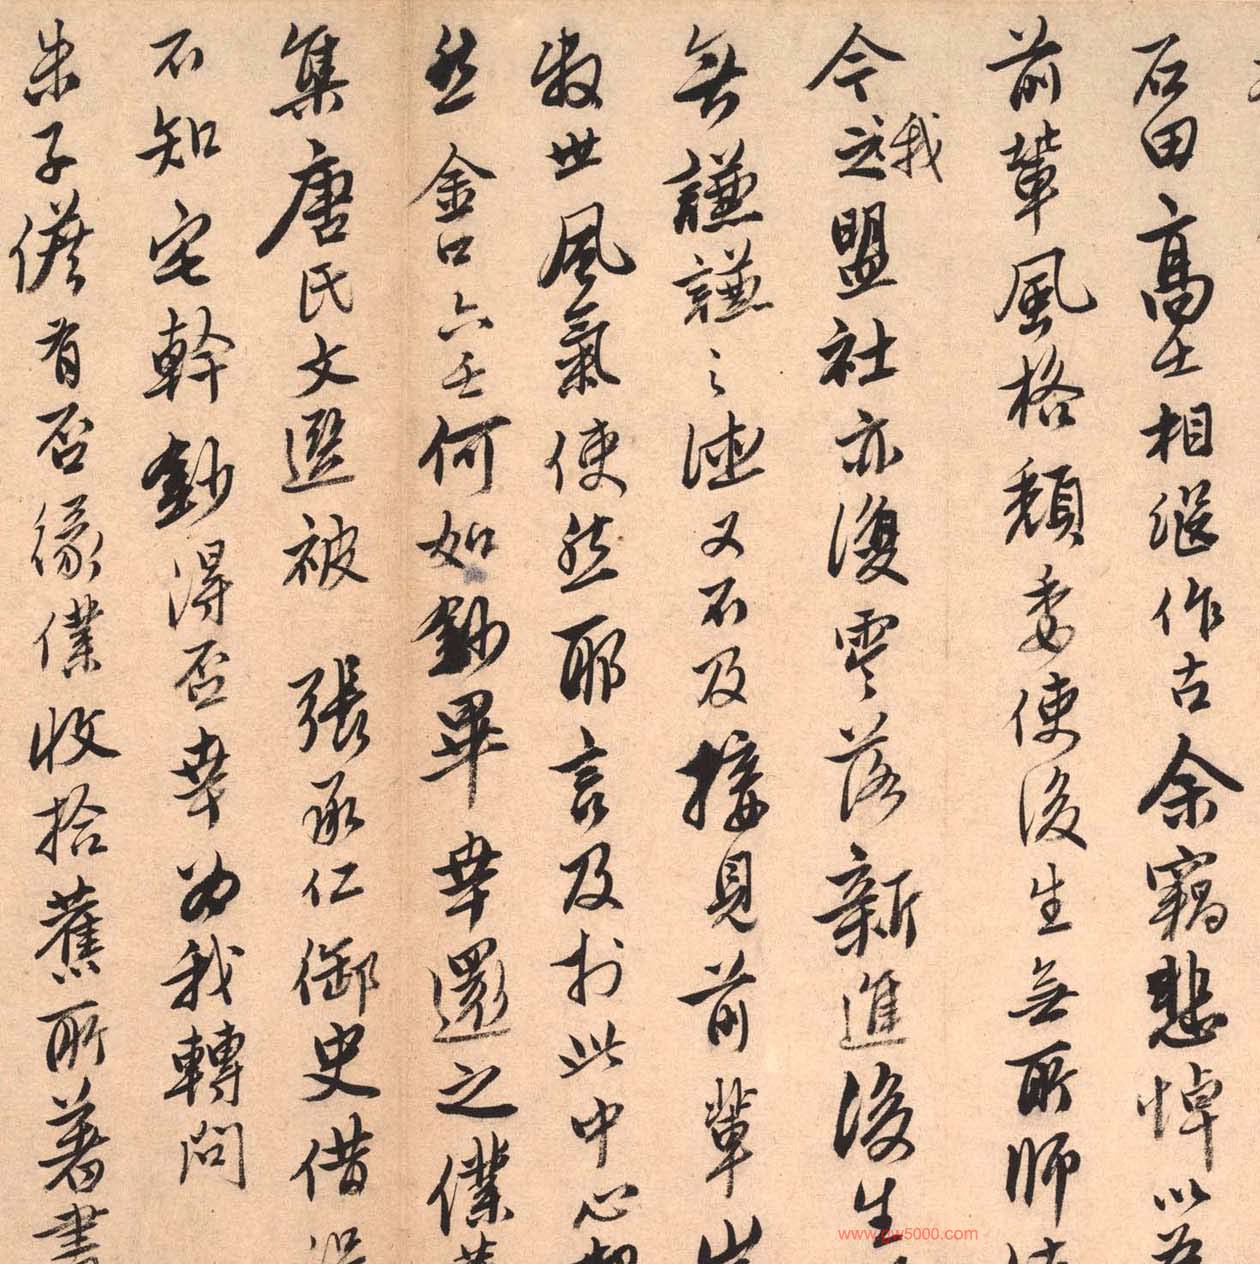 石田高士相继作古余窃悲悼以为
前輩風格頹委使後生無所師法
今之我盟社亦復零落新進後生
無謙謙之德又不及接見前輩
衰世風氣使然耶言及於此中心
然金口六壬何如鈔畢幸還之僕
集唐氏文選被 張承仁御史借
不知宅幹鈔得否幸為我轉問
朱子儀有否緣僕收拾舊所著書
www.gw5000.com